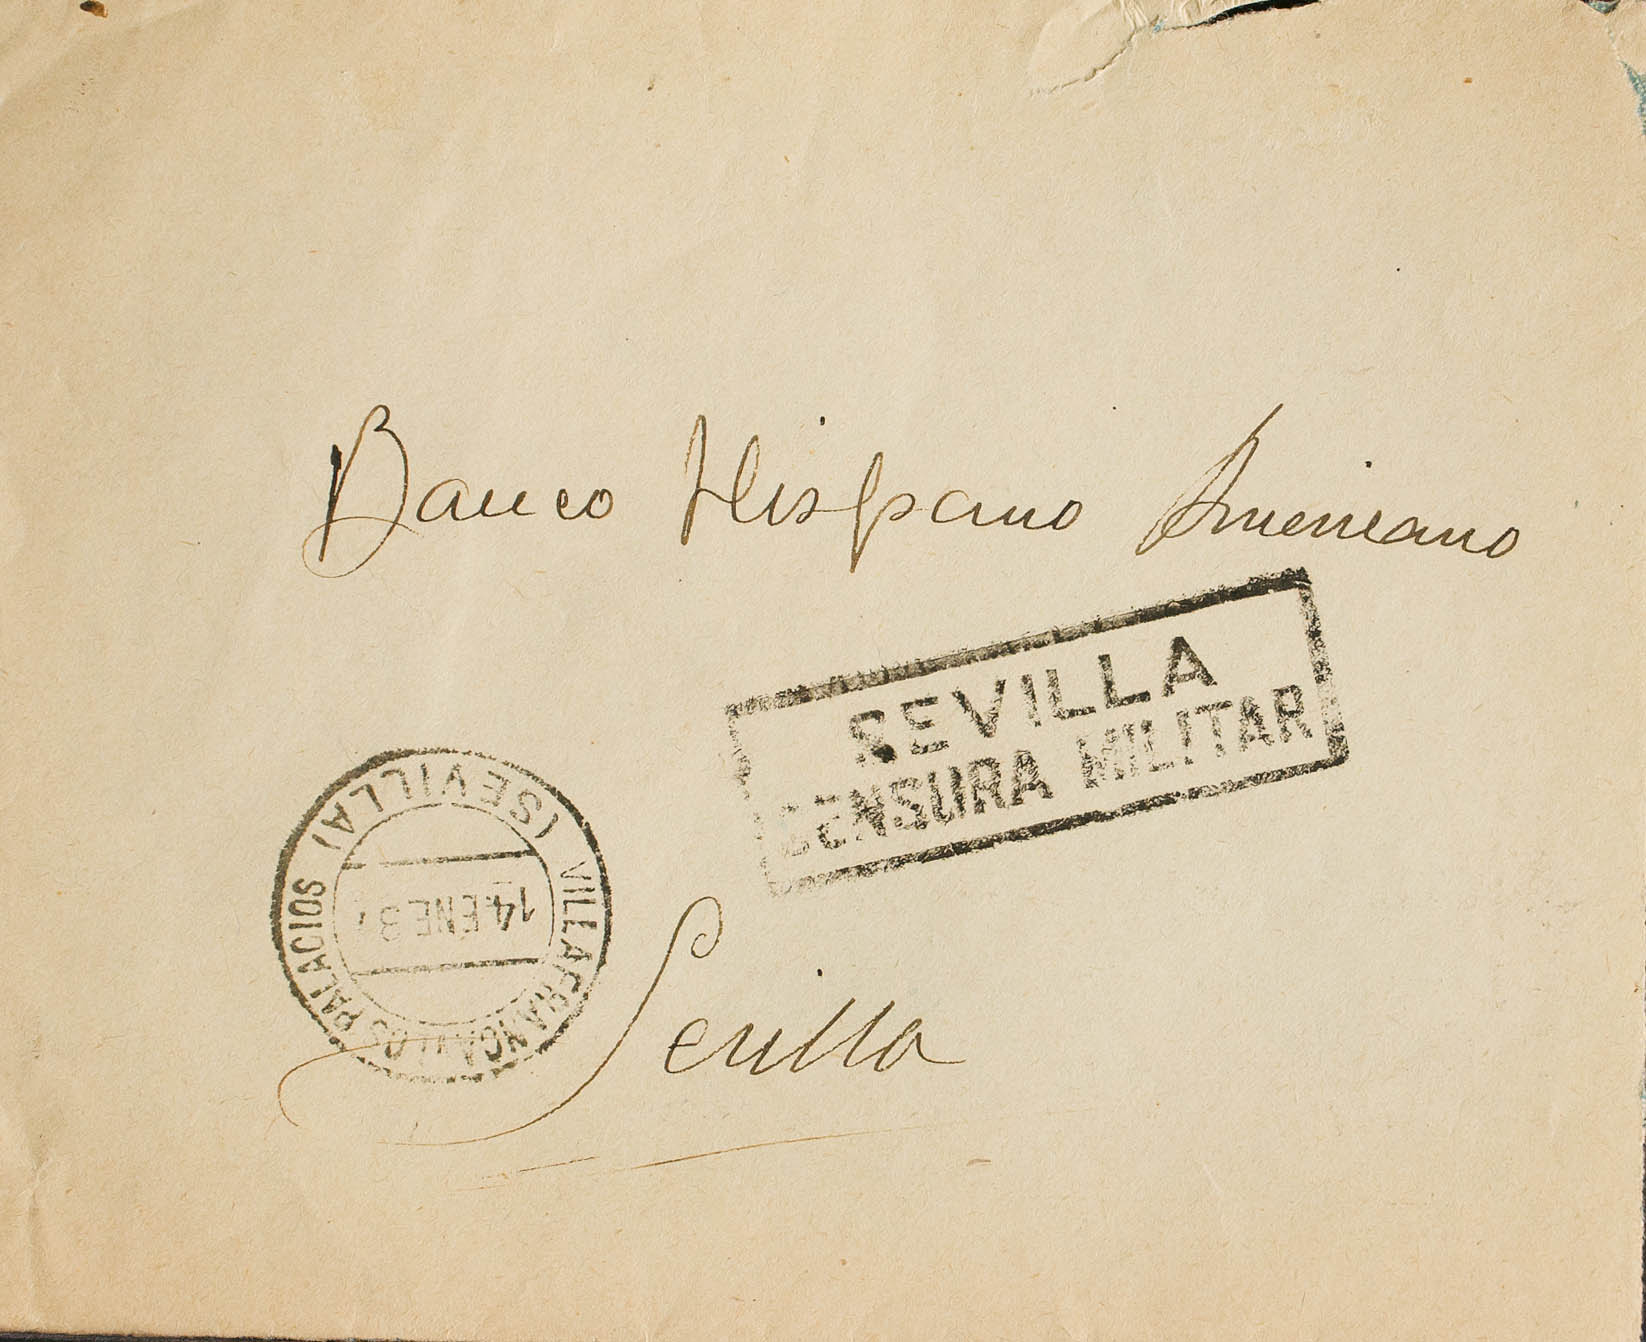 Banco Hispano Americano
SEVILLA
CENSURA MILITAR
VILLAFRANCA Y LOS PALACIOS (SEVILLA)
14 ENE 37
Sevilla